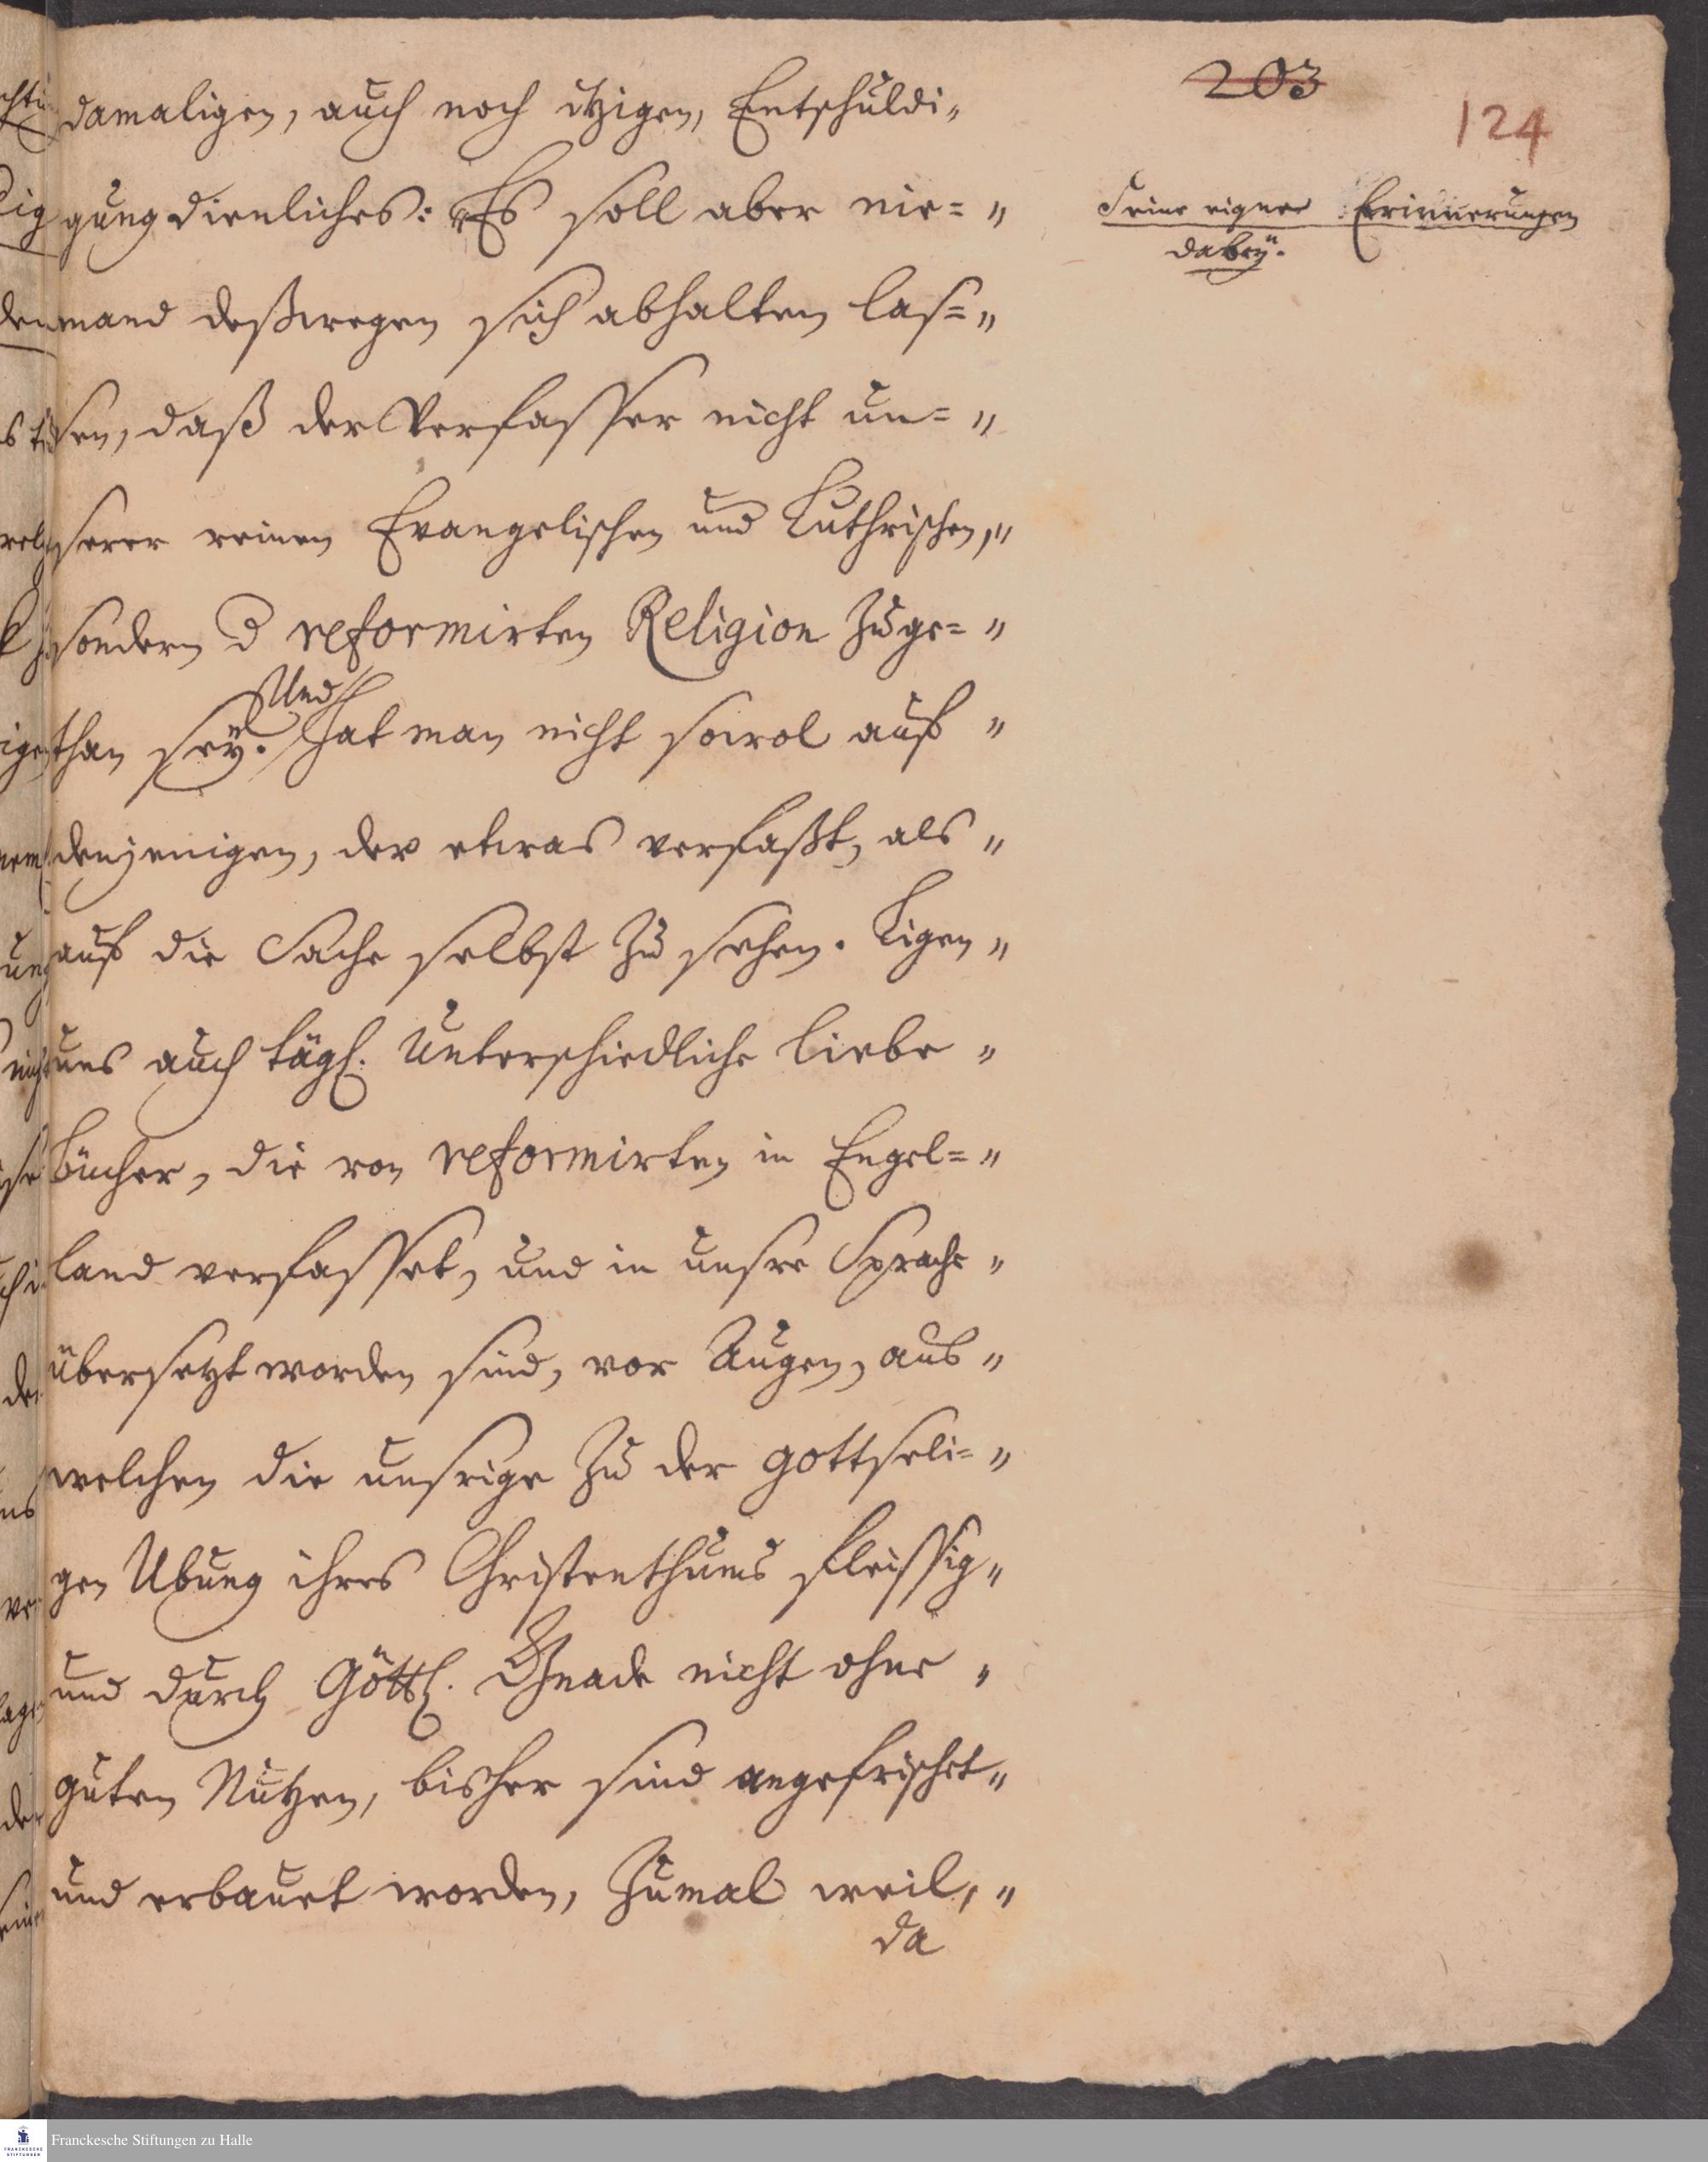 203
124
damaligen, auch noch itzigen, Entschuldi„
gung dienliches: „Es soll aber nie= „
mand deßwegen sich abhalten las= „
sen, daß der Verfasser nicht un= „
serer reinen Evangelischen und Luthrischen, „
sondern d reformirten Religion zuge= „
Und
than seÿ. hat man nicht sowol auf „
denjenigen, der etwas verfaßt, als „
auf die Sache selbst zu sehen. Ligen „
uns auch tägl. Unterschiedliche liebe „
bücher, die von reformirten in Engel= „
land verfasset, und in unsre Sprache „
übersetzt worden sind, vor Augen, aus „
welchen die unsrige zu der gottseli= „
gen Übung ihres Christenthums fleissig „
und durch Göttl. Gnade nicht ohne „
guten Nutzen, bisher sind angefrischet „
und erbauet worden, zumal weil, „
da
Seine eigene Erinnerungen
dabeÿ.
Franckesche Stiftungen zu Halle